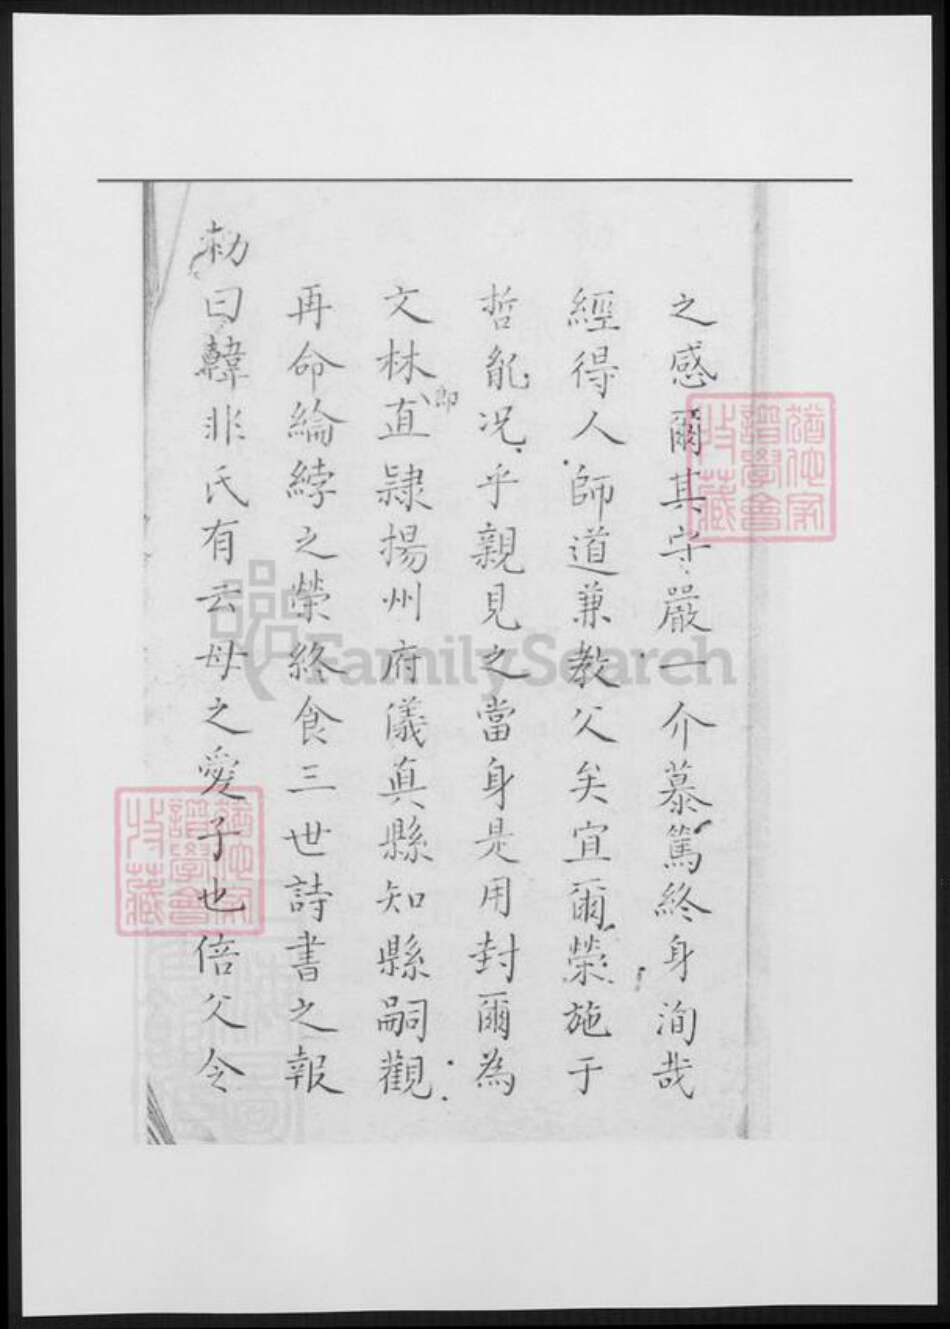 之感爾其守嚴一介慕篤終身洵哉
經得人師道兼教父矣宜爾榮施于
哲能况乎親見之當身是用封爾為
文林郎直隷揚州府儀真縣知縣嗣觀
再命綸綍之榮終食三世詩書之報
勑曰韓非氏有云母之愛子也倍父令
FamilySearch